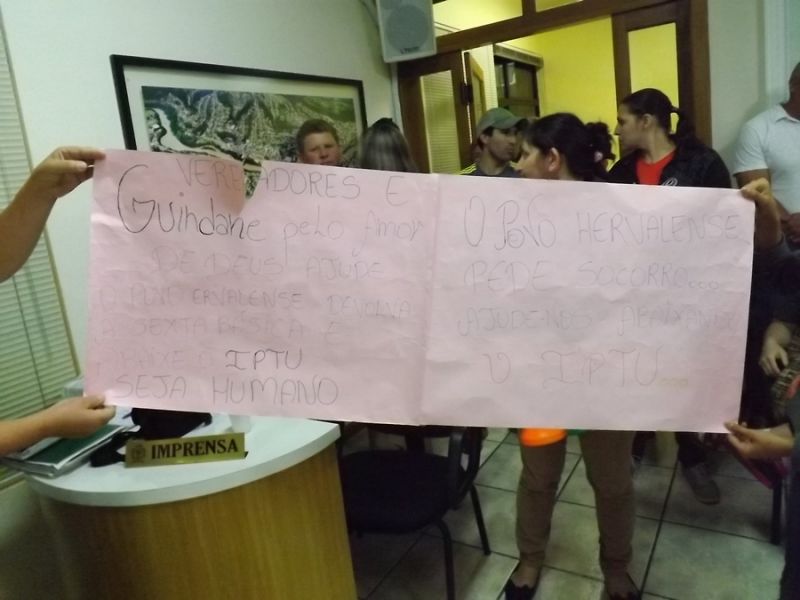 VEREADORES E
Guindane pelo Amor
DE DEUS AJUDE
O POVO ERVALENSE DEVOLVA
A SEXTA BÁSICA E
ABAIXE O IPTU
SEJA HUMANO
O POVO HERVALENSE
PEDE SOCORRO...
AJUDE-NOS ABAIXANDO
O IPTU...
IMPRENSA